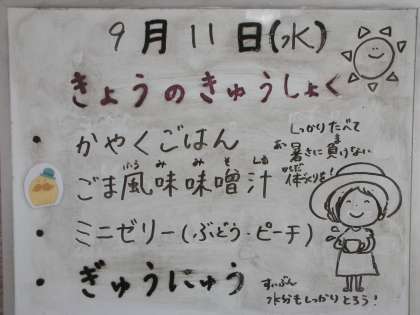 9月11日(水)
きょうのきゅうしょく
・かやくごはん
・ごま風味味噌汁
ふう み み そ しる
・ミニゼリー(ぶどう・ピーチ)
・ぎゅうにゅう
しっかりたべて
暑さに負けない
ま
体づくりを!
からだ
すいぶん
水分もしっかりとろう!